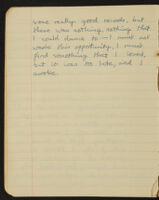 some really good records, but
there was nothing, nothing that
I could dance to – I must not
waste this opportunity, I must
find something that I loved,
but it was too late, and I
awoke.